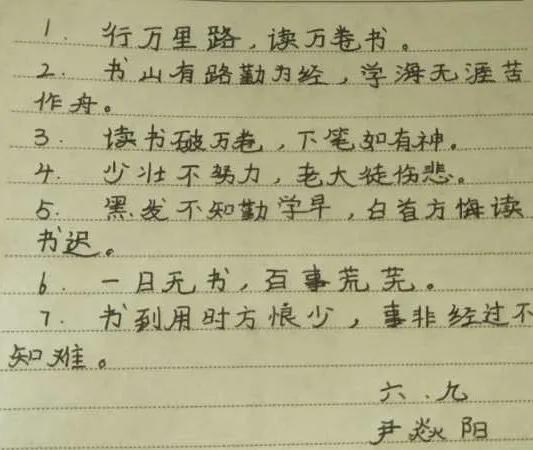 1. 行万里路，读万卷书。
2. 书山有路勤为经，学海无涯苦
作舟。
3. 读书破万卷，下笔如有神。
4. 少壮不努力，老大徒伤悲。
5. 黑发不知勤学早，白首方悔读
书迟。
6. 一日无书，百事荒芜。
7. 书到用时方恨少，事非经过不
知难。
六.九
尹焱阳